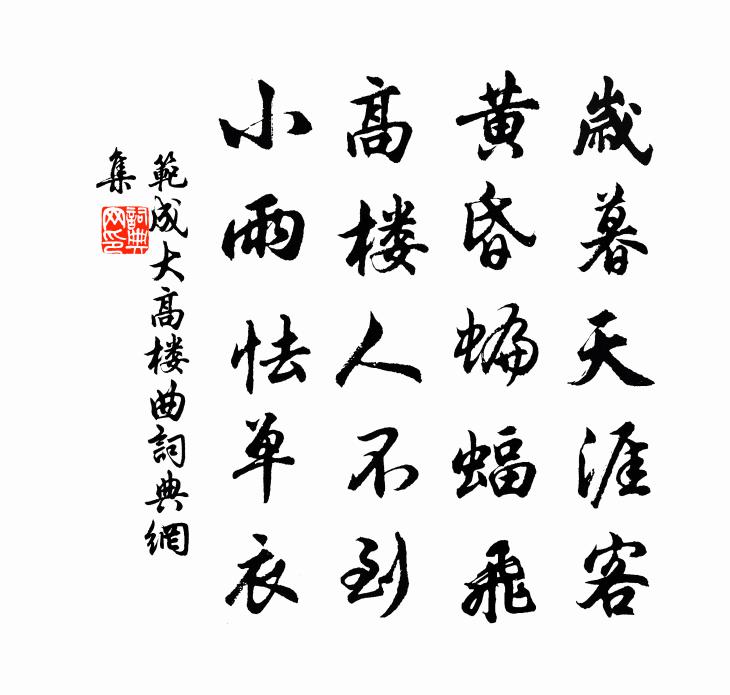 歲暮天涯客
黄昏蝙蝠飛
高楼人不到
小雨怯单衣
範成大高楼曲詞典網
集
詞典
网印